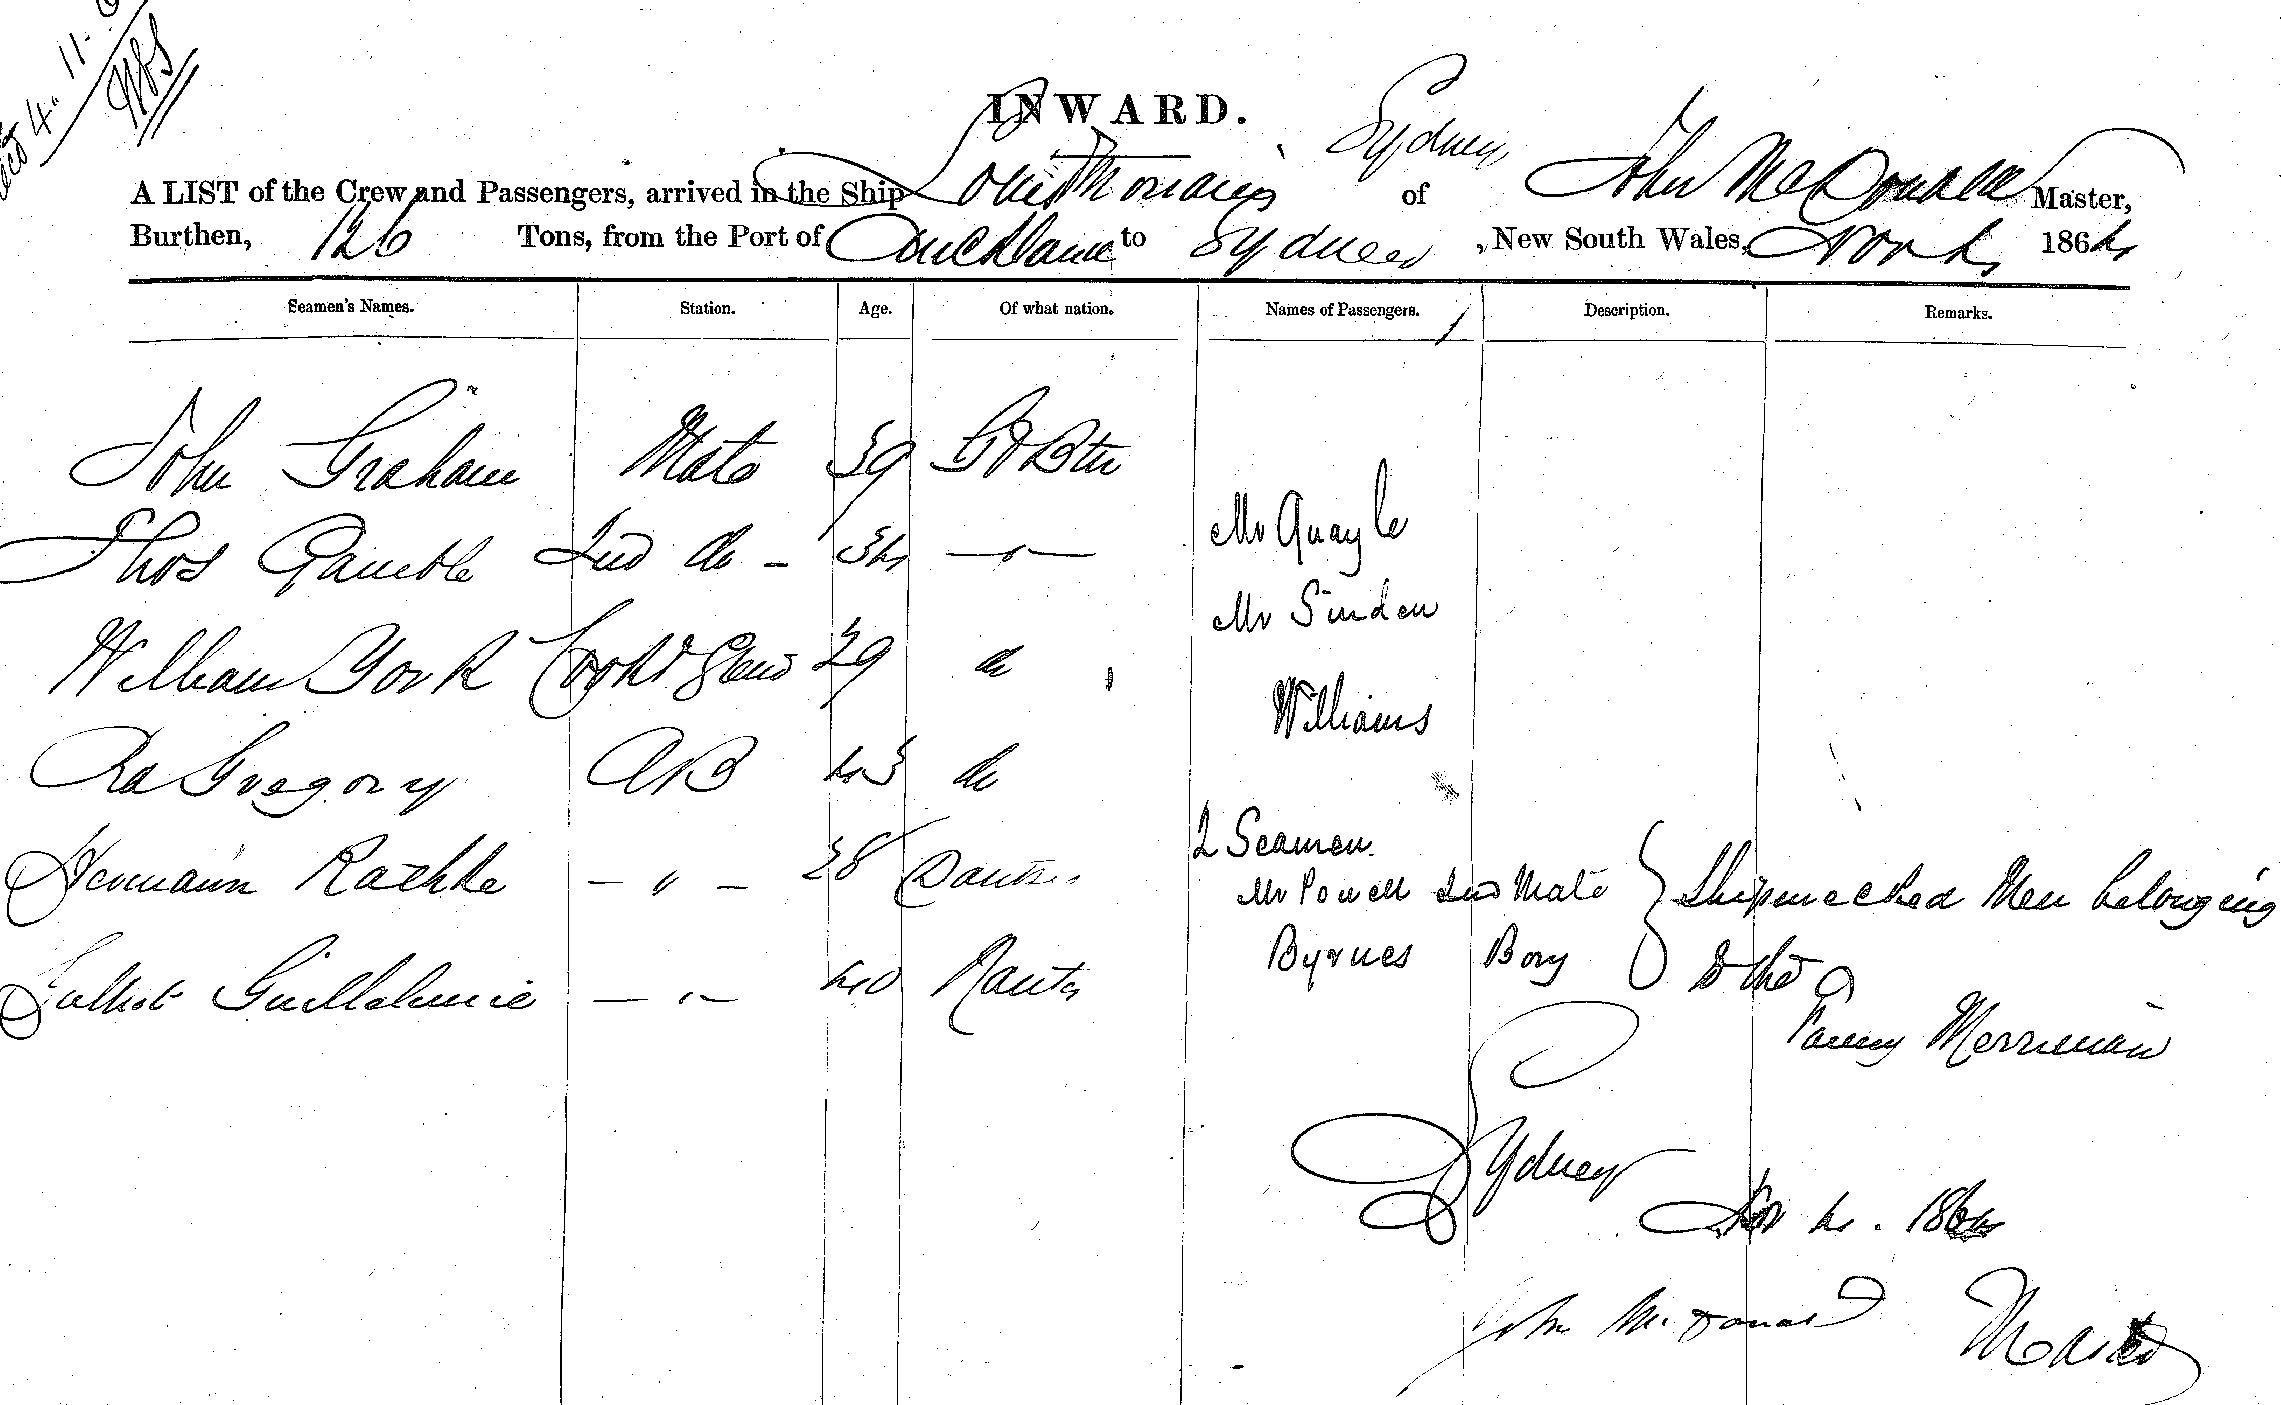 4. 11.
INWARD.
A LIST of the Crew and Passengers, arrived in the Ship Louis Monaries of Sydney, John McDonald Master,
Burthen, 126 Tons, from the Port of Auckland to Sydney, New South Wales, Nov 4 1864
Seamen's Names. Station. Age. Of what nation. Names of Passengers. Description. Remarks.
John Graham Mate 39 Gt Btn
Mr Quayle
Thos Gamble 2nd do - 34 — " —
Mr Sinden
William York Cook & Stew 29 do
Williams
Gregory AB 43 do
2 Seamen.
Hermann Rathke - " - 28
Mr Powell 2nd Mate } Shipwrecked Men belonging
Byrnes Boy to the
Guillelmie - " - 40 Nantes
Fanny Merriman
Sydney
Nov 4. 1864
John McDonald Master